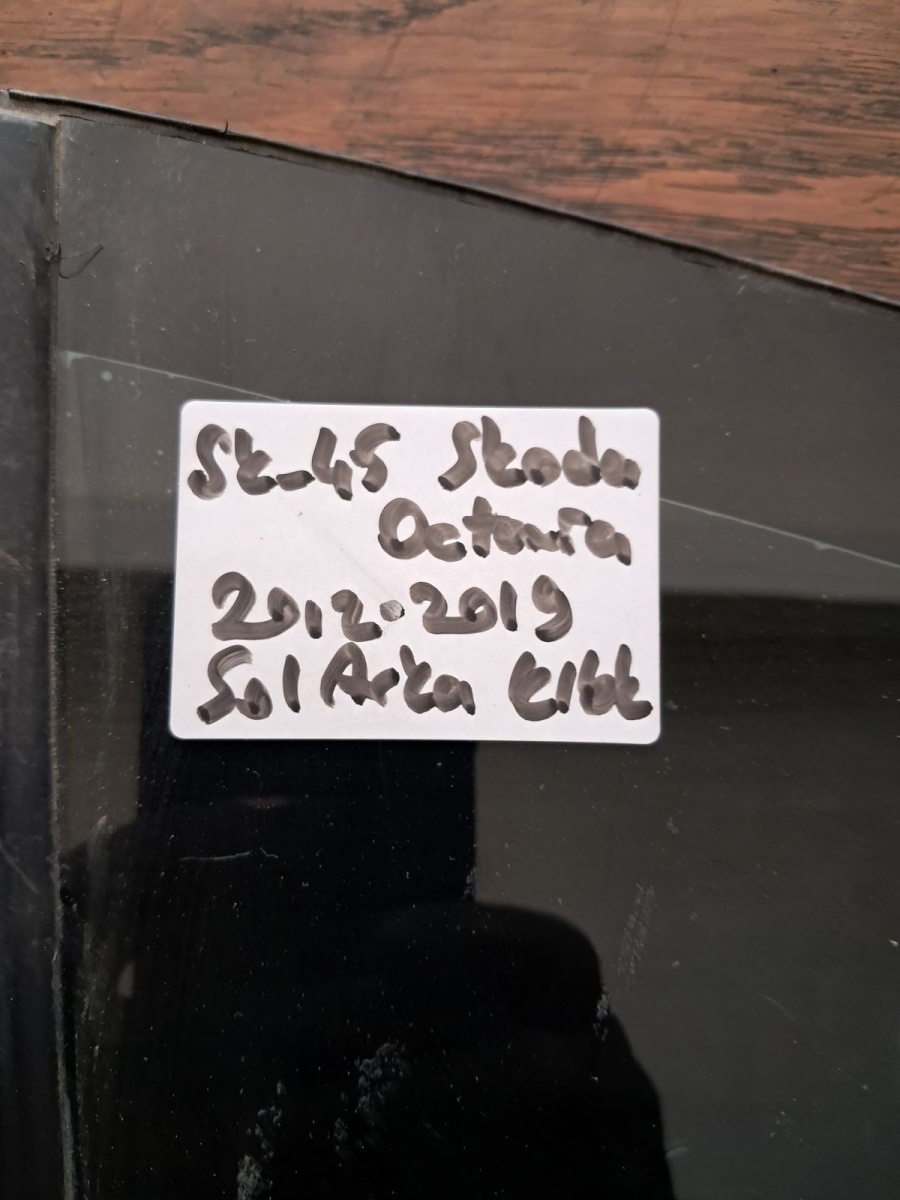 Sk-45 Skoda
Octavia
2012-2019
Sol Arka